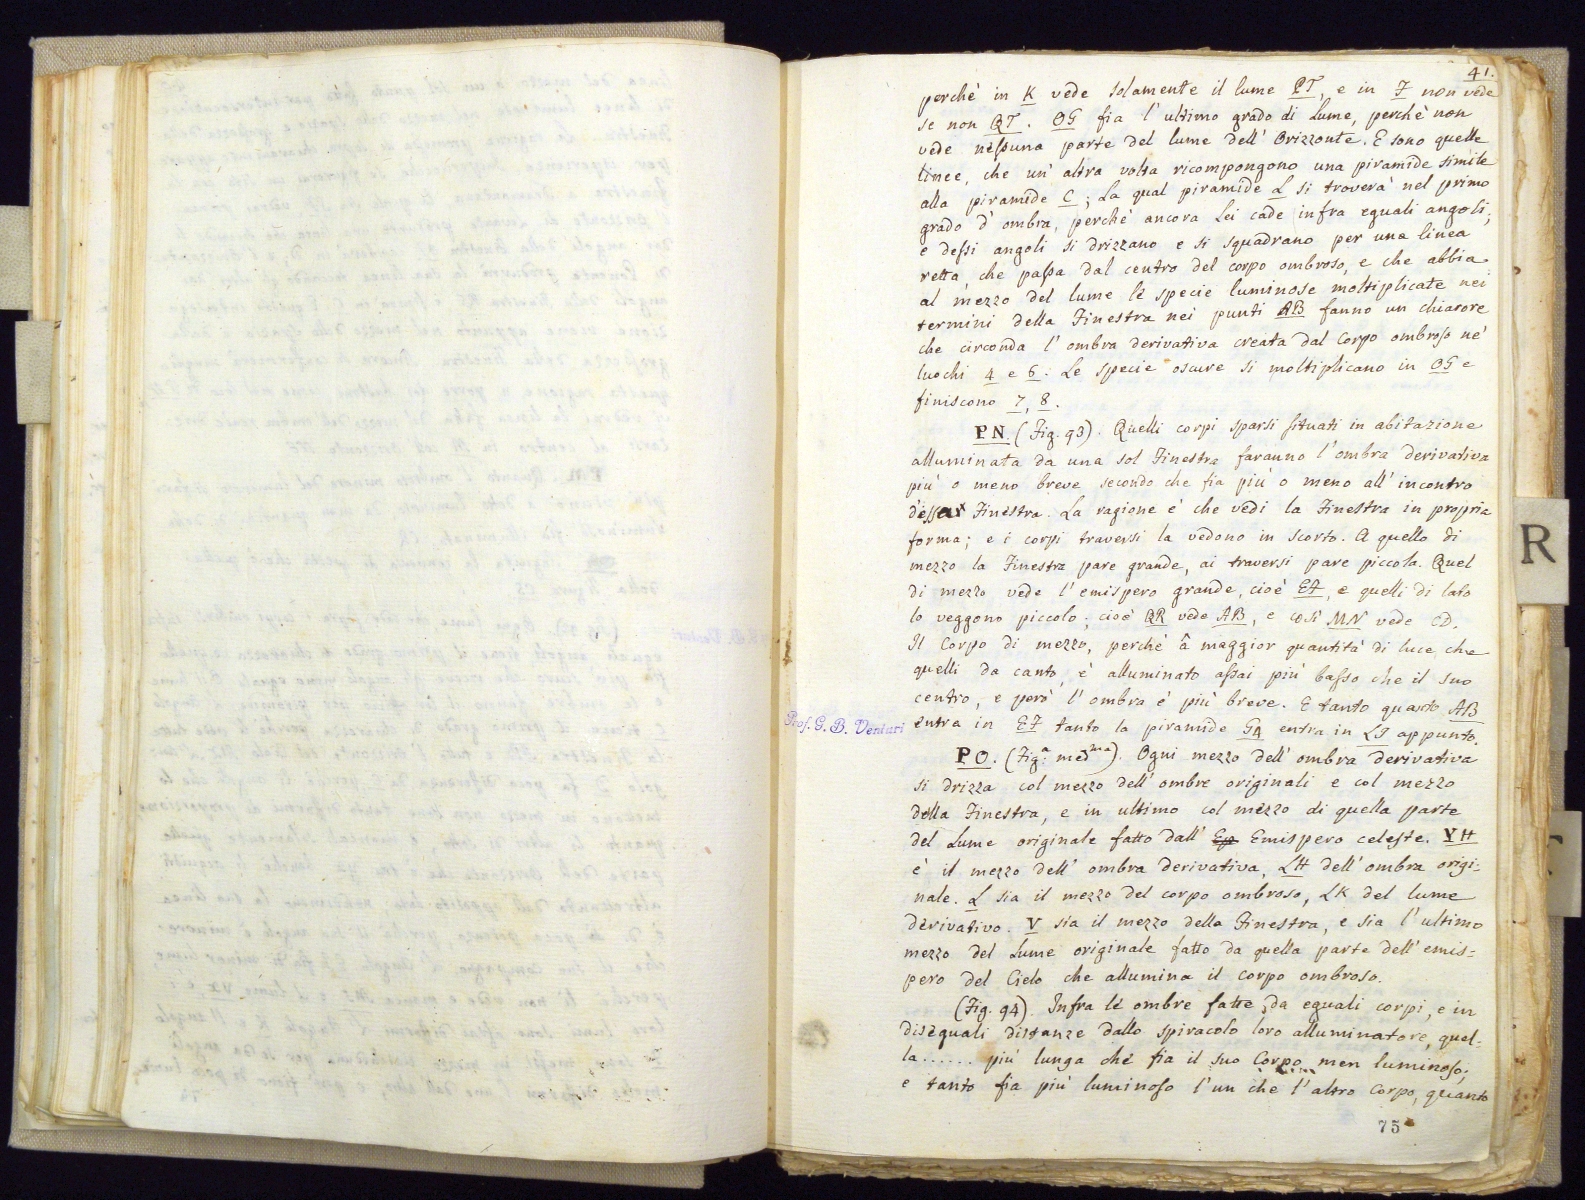 41.
perchè in K vede solamente il lume PT, e in F non vede
se non QT. OG fia l'ultimo grado di Lume, perchè non
vede nessuna parte del lume dell'Orizzonte. E sono quelle
linee, che un'altra volta ricompongono una piramide simile
alla piramide C; La qual piramide L si troverà nel primo
grado d'ombra, perchè ancora Lei cade infra eguali angoli;
e dessi angoli si drizzano e si squadrano per una linea
retta, che passa dal centro del corpo ombroso, e che abbia
al mezzo del lume le specie luminose moltiplicate nei
termini della Finestra nei punti AB fanno un chiarore
che circonda l'ombra derivativa creata dal corpo ombroso ne'
luochi 4 e 6. Le specie oscure si moltiplicano in OG e
finiscono 7, 8.
PN. (Fig. 93). Quelli corpi sparsi situati in abitazione
alluminata da una sol Finestra faranno l'ombra derivativa
più o meno breve secondo che fia più o meno all'incontro
d'essa Finestra. La ragione è che vedi la Finestra in propria
forma; e i corpi traversi la vedono in scorto. A quello di
mezzo la Finestra pare grande, ai traversi pare piccola. Quel
di mezzo vede l'emispero grande, cioè EF, e quelli di lato
lo veggono piccolo; cioè QR vede AB, e così MN vede CD.
Il Corpo di mezzo, perchè â maggior quantità di luce che
quelli da canto, è alluminato assai più basso che il suo
centro, e però l'ombra è più breve. E tanto quanto AB
Prof. G. B. Venturi
entra in EF tanto la piramide G4 entra in LI appunto.
PO. (Fig.ª medma). Ogni mezzo dell'ombra derivativa
si drizza col mezzo dell'ombre originali e col mezzo
della Finestra, e in ultimo col mezzo di quella parte
del Lume originale fatto dall' Emispero celeste. YH
è il mezzo dell'ombra derivativa, LH dell'ombra origi-
nale. L sia il mezzo del corpo ombroso, LK del lume
derivativo. V sia il mezzo della Finestra, e sia l'ultimo
mezzo del Lume originale fatto da quella parte dell'emis-
pero del Cielo che allumina il corpo ombroso.
(Fig. 94). Infra le ombre fatte da eguali corpi, e in
diseguali distanze dallo spiracolo loro alluminatore, quel-
la ...... più lunga che fia il suo Corpo men luminoso;
e tanto fia più luminoso l'un che l'altro Corpo, quanto
75
R